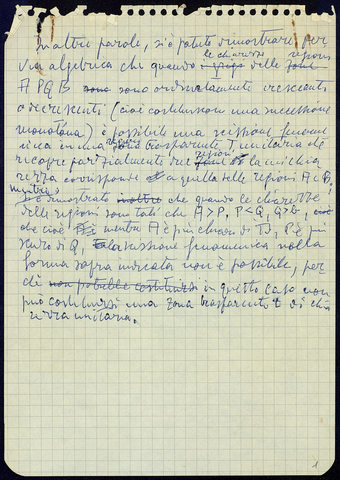 In altre parole, si è potuto dimostrare per
via algebrica che quando le chiarezze delle regioni
A P Q B sono ordinatamente crescenti
o decrescenti (cioè costituiscono una successione
monotòna) è possibile una scissione fenome
nica in una regione trasparente T, unitaria che
ricopre parzialmente due regioni la cui chia
rezza corrisponde a quella delle regioni A e B,
mentre
si è dimostrato inoltre che quando le chiarezze
delle regioni sono tali che A > P, P < Q, Q > B,
che cioè mentre A è più chiaro di P, P è più
scuro di Q, la scissione fenomenica nella
forma sopra indicata non è possibile, per
ché non potrebbe costituirsi in questo caso non
può costituirsi una zona trasparente t di chia
rezza unitaria.
1